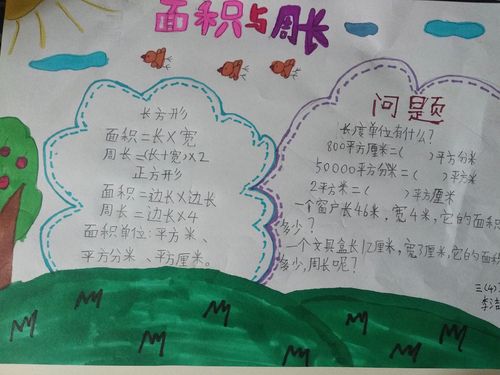 面积与周长
长方形
面积=长×宽
周长=(长+宽)×2
正方形
面积=边长×边长
周长=边长×4
面积单位:平方米、
平方分米、平方厘米。
问题
长度单位有什么?
800平方厘米=( )平方分米
50000平方分米=( )平方米
2平方米=( )平方厘米
一个窗户长46米,宽4米,它的面积
多少?
一个文具盒长12厘米,宽7厘米,它的面积
多少,周长呢?
三(4)
李浩